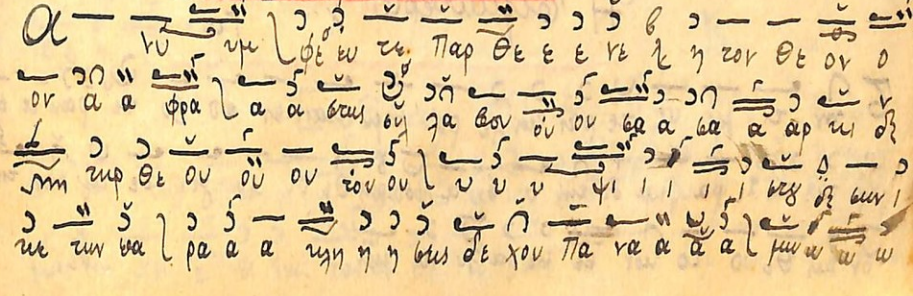 Α νυ υμ φε ευ τε Παρ θε ε ε νε η τον θε ον ο
ον α α φρα α α στως συλ λα βου ου ου σα α σα α αρ κι
Μη τηρ θε ου ου ου του ου υ υ υ ψι ι ι ι ι στου σων ι
κε των πα ρα α α κλη η η σεις δε χου Πα να α α α μω ω ω ω